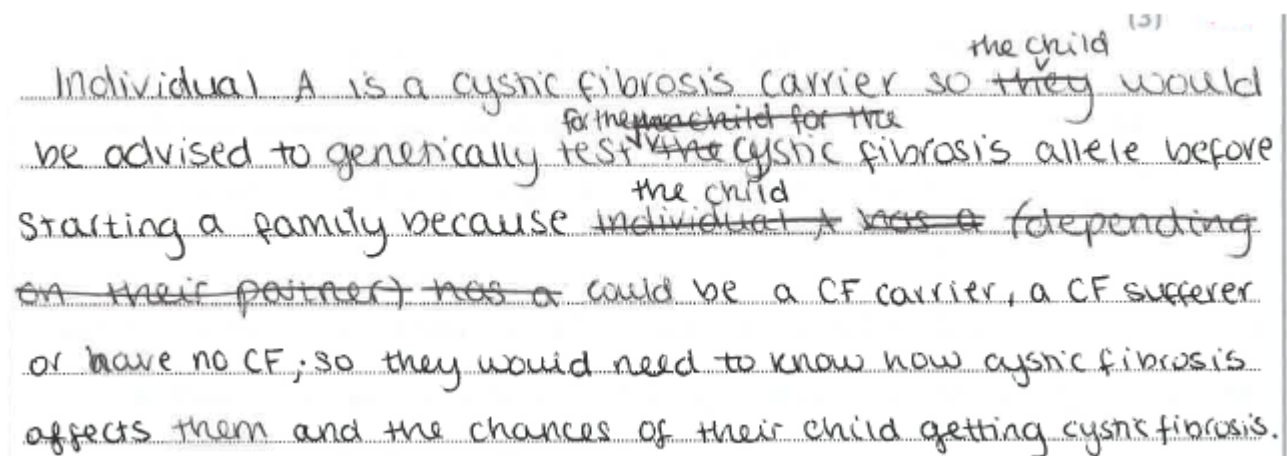 (3)
the child
Individual A is a cystic fibrosis carrier so they would
for the child for the
be advised to genetically test the cystic fibrosis allele before
the child
starting a family because individual A has a (depending
on their partner) has a could be a CF carrier, a CF sufferer
or have no CF; so they would need to know how cystic fibrosis
affects them and the chances of their child getting cystic fibrosis.